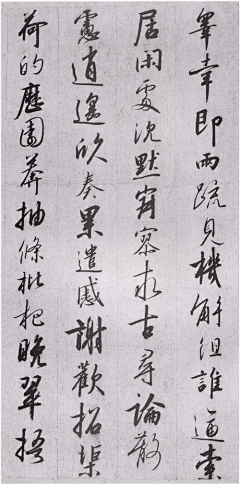 皋幸即兩疏見機解組誰逼索
居閑處沈默寂寥求古尋論散
慮逍遙欣奏累遣慼謝歡招渠
荷的歷園莽抽條枇杷晚翠梧